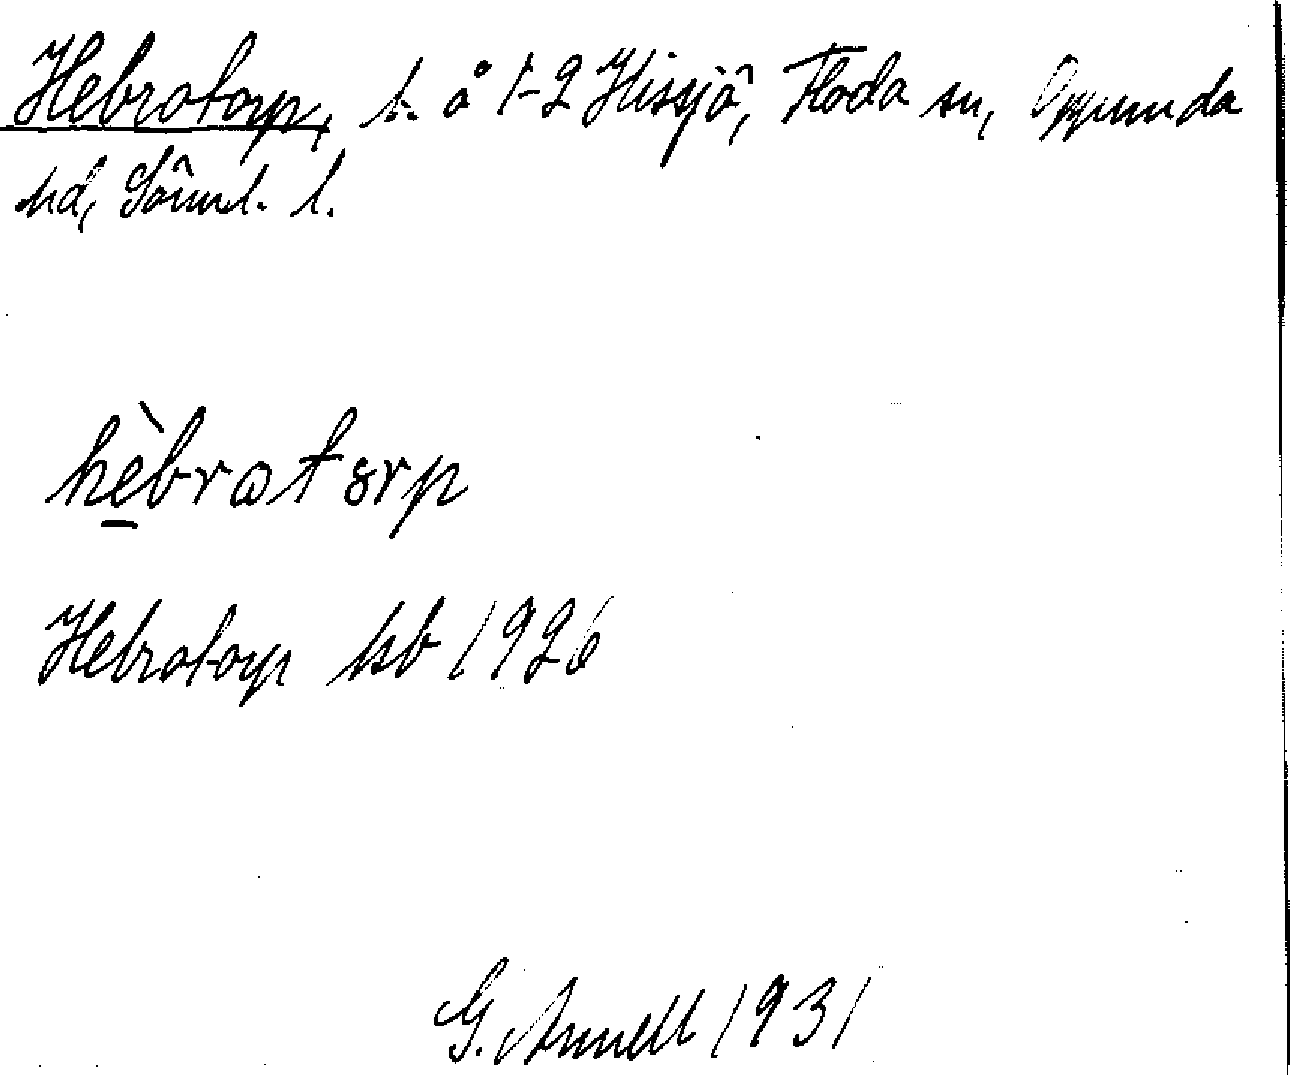 Hebrotorp, t. å 1-2 Hissjö, Floda sn, Oppunda
hd, Sörml. l.
hèbrατɤrp
Hebrotorp kb 1926
G. Arnell 1931